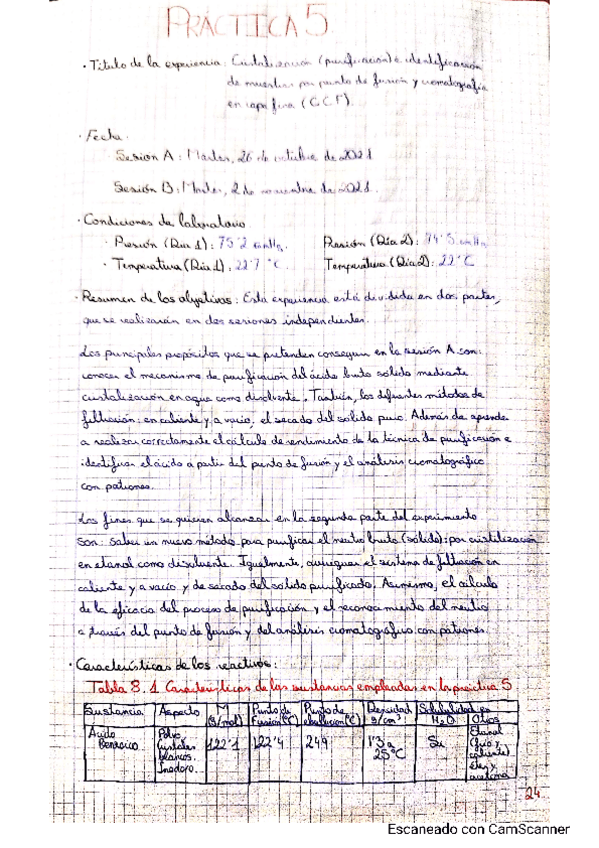 PRÁCTICA 5
· Título de la experiencia: Cristalización (purificación) e identificación
de muestras por punto de fusión y cromatografía
en capa fina (C.C.F).
· Fecha:
Sesión A: Martes, 26 de octubre de 2021
Sesión B: Martes, 2 de noviembre de 2021.
· Condiciones de laboratorio
· Presión (Día 1): 75'2 cmHg. Presión (Día 2): 74'5 cmHg
· Temperatura (Día 1): 22'7 °C. Temperatura (Día 2): 22 °C
· Resumen de los objetivos: Esta experiencia está dividida en dos partes,
que se realizarán en dos sesiones independientes.
Los principales propósitos que se pretenden conseguir en la sesión A son:
conocer el mecanismo de purificación del ácido bruto sólido mediante
cristalización en agua como disolvente. También, los diferentes métodos de
filtración: en caliente y a vacío, el secado del sólido puro. Además de aprender
a realizar correctamente el cálculo de rendimiento de la técnica de purificación e
identificar el ácido a partir del punto de fusión y el análisis cromatográfico
con patrones.
Los fines que se quieren alcanzar en la segunda parte del experimento
son: saber un nuevo método para purificar el neutro bruto (sólido): por cristalización
en etanol como disolvente. Igualmente, el sistema de filtración en
caliente y a vacío y de secado del sólido purificado. Asimismo, el cálculo
de la eficacia del proceso de purificación y el reconocimiento del neutro
a través del punto de fusión y del análisis cromatográfico con patrones.
· Características de los reactivos:
Tabla 8.1 Características de las sustancias empleadas en la práctica 5
Sustancia Aspecto M (g/mol) Punto de fusión (°C) Punto de ebullición (°C) Densidad g/cm³ Solubilidad en
H₂O Otros
Ácido Benzoico Polvo cristales blancos. Inodoro. 122'1 122'4 249 1'3 a 25°C Si Etanol (frío y caliente) éter y acetona
24
Escaneado con CamScanner